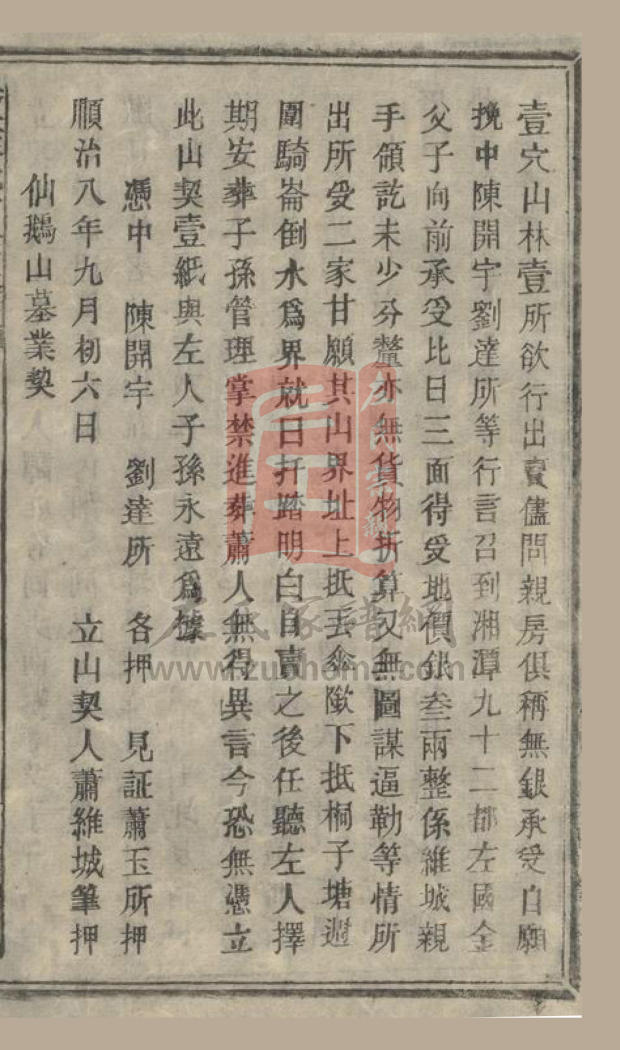 壹穴山林壹所欲行出賣儘問親房俱稱無銀承受自願
挽中陳開宇劉達所等行言召到湘潭九十二都左國金
父子向前承受比日三面得受地價銀叁兩整係維城親
手領訖未少分釐亦無貨物折算又無圖謀逼勒等情所
出所受二家甘願其山界址上抵丟傘墩下抵桐子塘週
圍騎崙倒水爲界就日扦踏明白自賣之後任聽左人擇
期安葬子孫管理掌禁進葬蕭人無得異言今恐無憑立
此山契壹紙與左人子孫永遠爲據
憑中 陳開宇 劉達所 各押 見証蕭玉所押
順治八年九月初六日 立山契人蕭維城筆押
仙鵝山墓業契
www.zuxhome.com